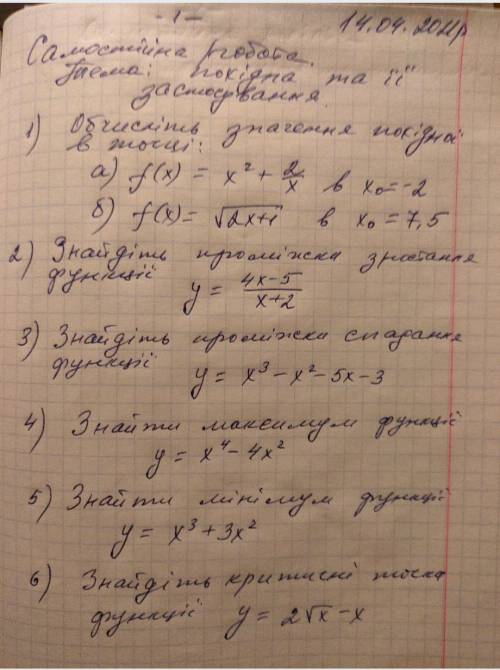 - 1 -
14.04.2021р
Самостійна робота.
Тема: похідна та її
застосування.
1) Обчисліть значення похідної
в точці:
а) f(x) = x² + 2/x в x₀ = -2
б) f(x) = √2x+1 в x₀ = 7,5
2) Знайдіть проміжки зростання
функції
y = (4x-5)/(x+2)
3) Знайдіть проміжки спадання
функції
y = x³ - x² - 5x - 3
4) Знайти максимум функції
y = x⁴ - 4x²
5) Знайти мінімум функції
y = x³ + 3x²
6) Знайдіть критичні точки
функції y = 2√x - x